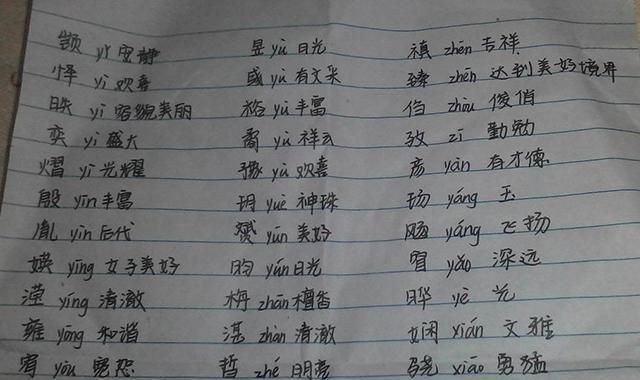 顗 yǐ 安静 昱 yù 日光 禛 zhēn 吉祥
怿 yì 欢喜 彧 yù 有文采 臻 zhēn 达到美好境界
昳 yì 容貌美丽 裕 yù 丰富 㑇 zhòu 俊俏
奕 yì 盛大 矞 yù 祥云 孜 zī 勤勉
熠 yì 光耀 豫 yù 欢喜 彦 yàn 有才德
殷 yīn 丰富 玥 yuè 神珠 玚 yáng 玉
胤 yìn 后代 赟 yūn 美好 飏 yáng 飞扬
媖 yīng 女子美好 昀 yún 日光 窅 yǎo 深远
滢 yíng 清澈 栴 zhān 檀香 晔 yè 光
雍 yōng 和谐 湛 zhàn 清澈 娴 xián 文雅
宥 yòu 宽恕 哲 zhé 明亮 骁 xiāo 勇猛